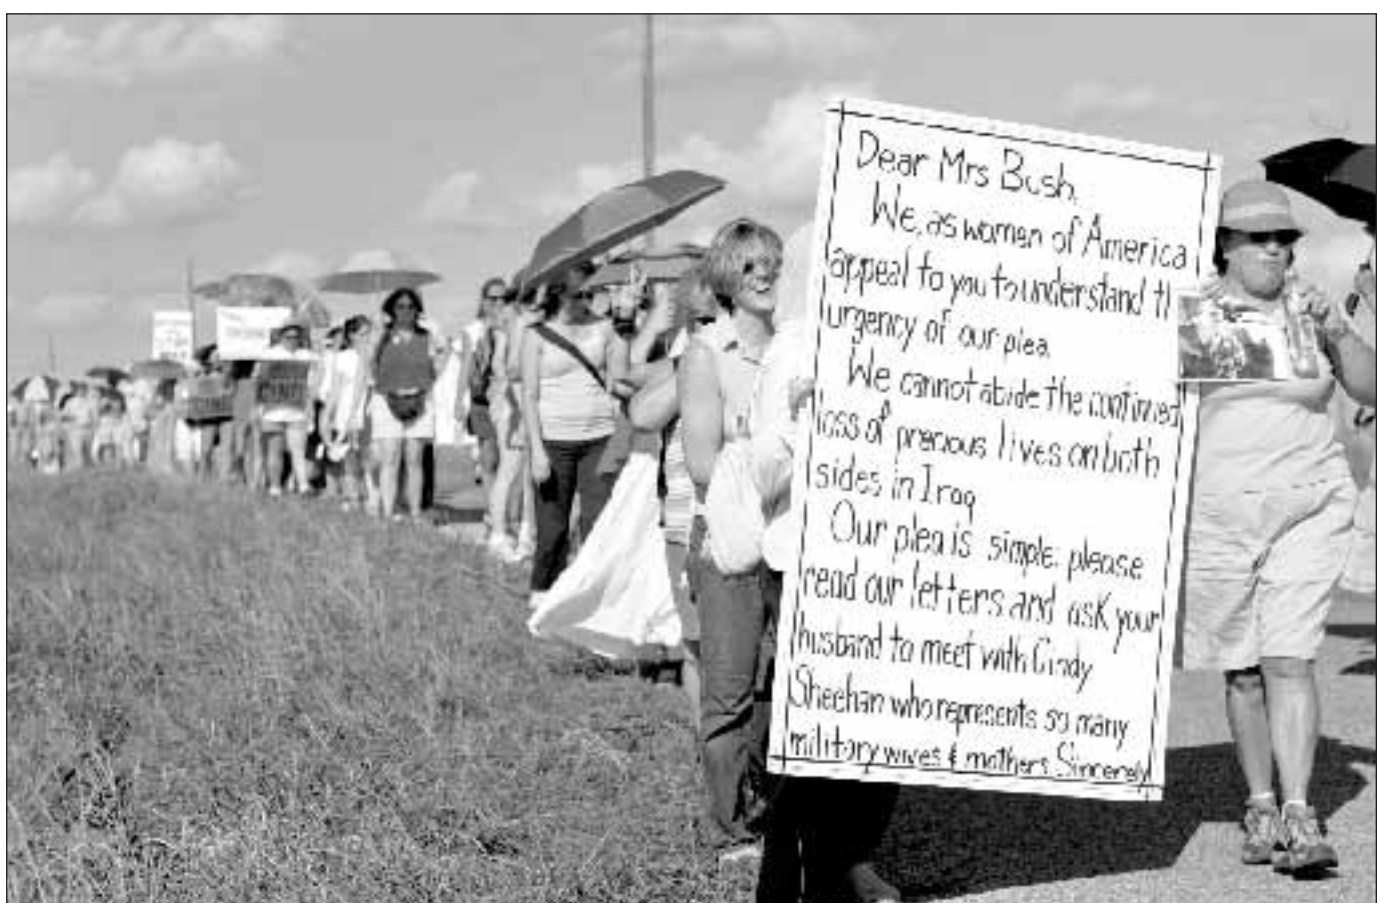 Dear Mrs Bush,
We, as women of America
appeal to you to understand th
urgency of our plea.
We cannot abide the continued
loss of precious lives on both
sides in Iraq
Our plea is simple: please
read our letters and ask your
husband to meet with Cindy
Sheehan who represents so many
military wives & mothers. Sincerely